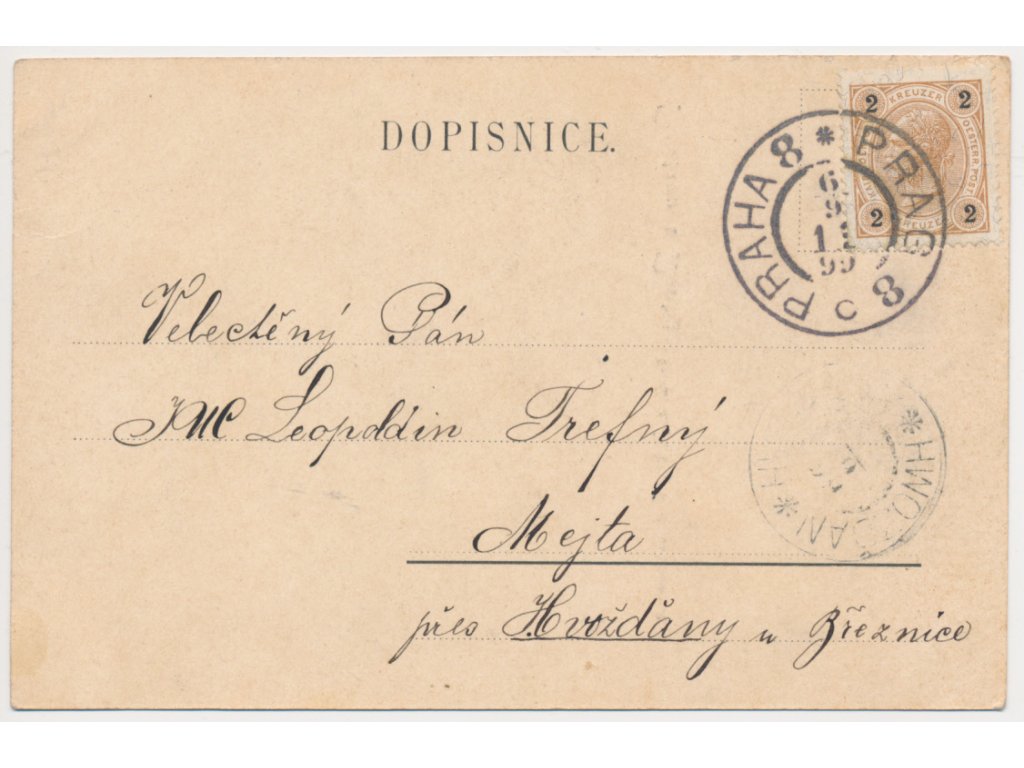 DOPISNICE.
2 KREUZER 2
OESTERR. POST
2 KREUZER 2
PRAHA 8 * PRAG 8
6
9
99
C
Velectěný Pán
Leopoldin Trefný
Mejta
přes Hvožďány u Březnice